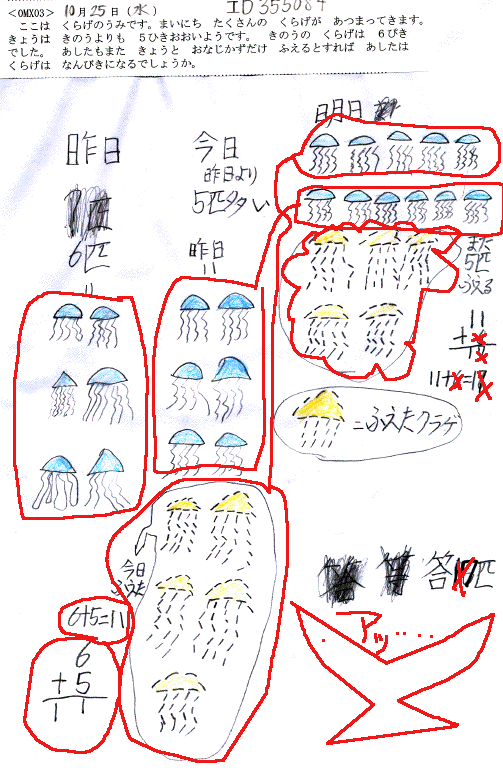 <OMX03> 10月25日(水) ID355084
ここは くらげのうみです。まいにち たくさんの くらげが あつまってきます。
きょうは きのうよりも 5ひきおおいようです。 きのうの くらげは 6ぴき
でした。 あしたもまた きょうと おなじかずだけ ふえるとすれば あしたは
くらげは なんびきになるでしょうか。
明日
昨日
今日
昨日より
5匹多い
6匹
=
昨日
=
また
5匹
ふえる
11
+
1
11+ =1
=ふえたクラゲ
今日
ふえた
6+5=11
6
+5
11
答 匹
アッ……